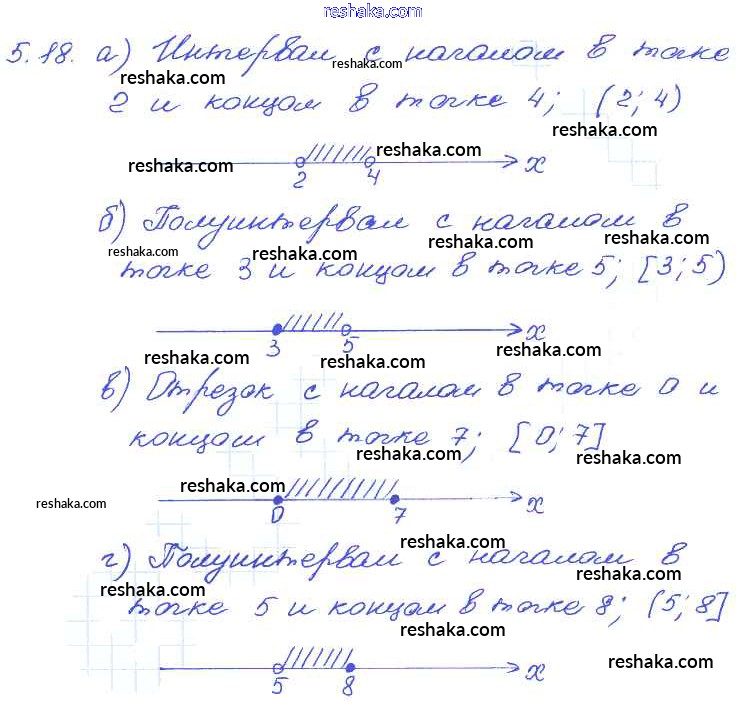 reshaka.com
5.18. а) Интервал с началом в точке
reshaka.com reshaka.com reshaka.com
2 и концом в точке 4; (2; 4)
reshaka.com
reshaka.com reshaka.com x
2 4
б) Полуинтервал с началом в
reshaka.com reshaka.com reshaka.com reshaka.com
точке 3 и концом в точке 5; [3; 5)
reshaka.com
x
3 5
reshaka.com reshaka.com reshaka.com
в) Отрезок с началом в точке 0 и
концом в точке 7; [0; 7]
reshaka.com reshaka.com
reshaka.com reshaka.com x
0 7
reshaka.com
г) Полуинтервал с началом в
reshaka.com reshaka.com
точке 5 и концом в точке 8; (5; 8]
reshaka.com
reshaka.com
x
5 8